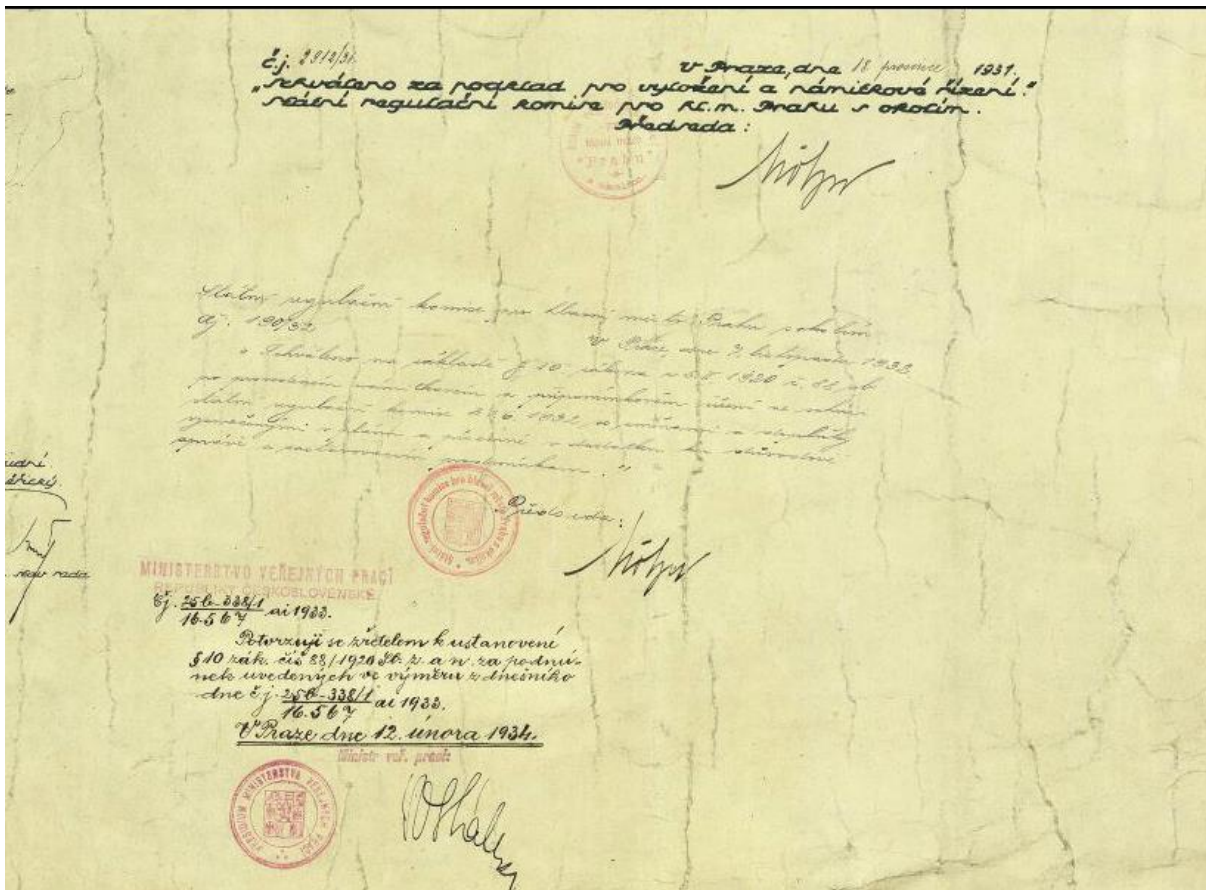 č.j. 2912/31. V Praze, dne 18 prosince 1931.
„Schváleno za podklad pro vyložení a námitkové řízení."
Státní regulační komise pro hl. m. Prahu s okolím.
Předseda:
Prahu
Státní regulační komise pro hlavní město Prahu s okolím
čj. 190/32 V Praze, dne 7. listopadu 1932
„Schváleno na základě § 10 zákona z 5.II. 1920 č. 88 sb.
po provedeném námitkovém a připomínkovém řízení se
státní regulační komise 1932, se změnami a
vyznačenými v plánu a
správě a
Státní regulační komise pro hlavní město Prahu s okolím
Předseda:
stav. rada
MINISTERSTVO VEŘEJNÝCH PRACÍ
REPUBLIKY ČESKOSLOVENSKÉ
Čj. 25b-338/1
16.567 ai 1933.
Potvrzuji se zřetelem k ustanovení
§ 10 zák. čís 88/1920 Sb. z. a n. za podmí-
nek uvedených ve výměru z dnešního
dne č.j. 25b-338/1
16.567 ai 1933.
V Praze dne 12. února 1934.
Ministr veř. prací:
PRESIDIUM MINISTERSTVA VEŘEJNÝCH PRACÍ